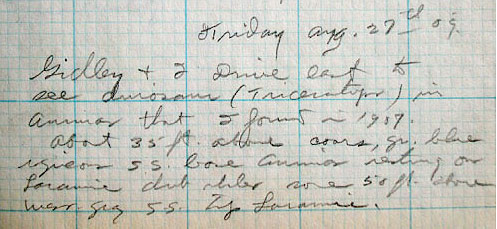 Friday Aug. 27th 09.
Gidley + I Drive east to
see dinosaur (Triceratops) in
Animas that I found in 1907.
About 35 ft. above coars, gr. blue
ss base Animas resting on
Laramie 50 ft. above
gray ss. Laramie.